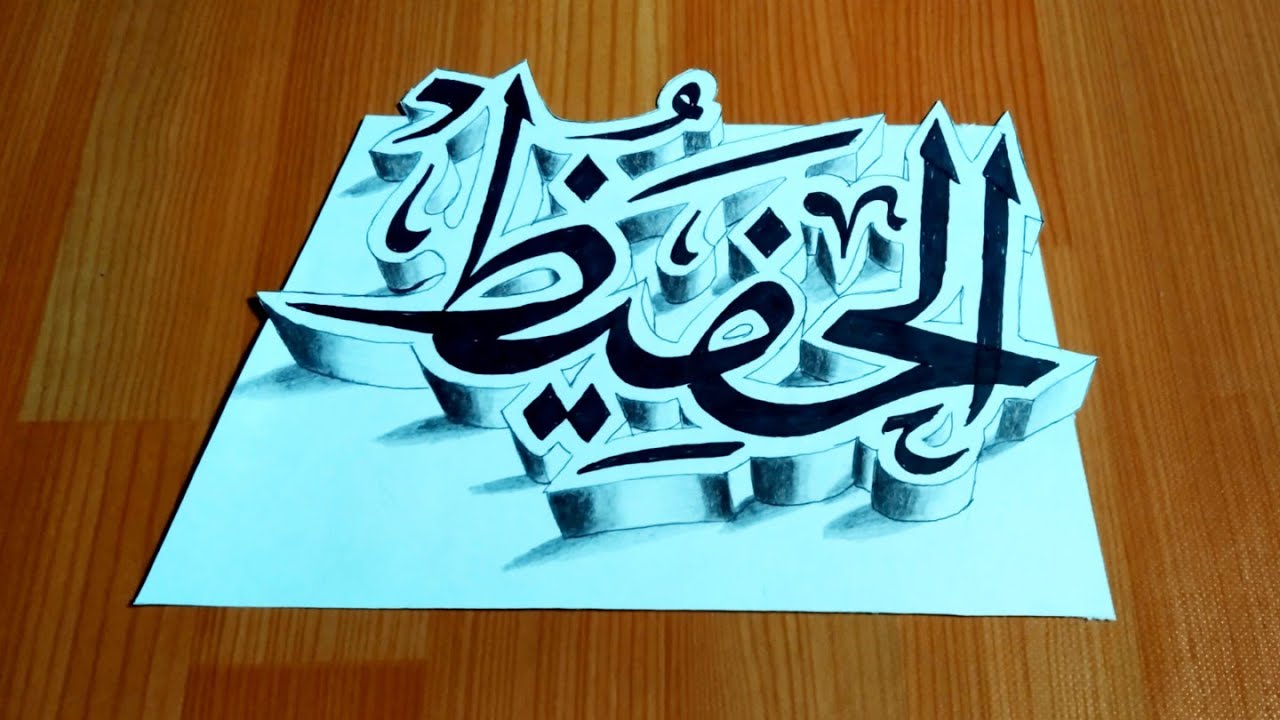 الحَفِيظُ